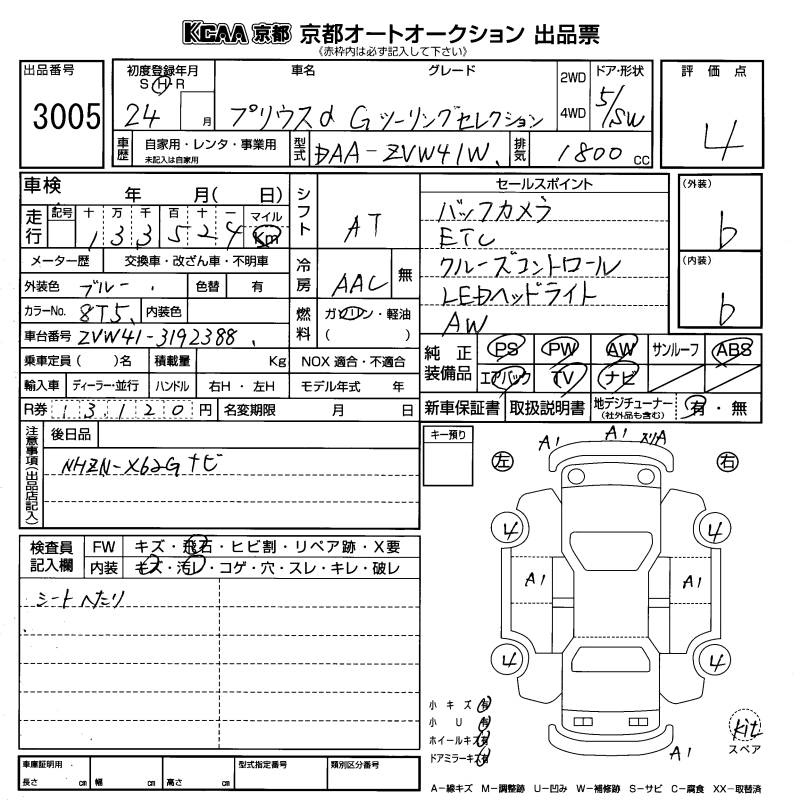 KCAA 京都 京都オートオークション 出品票
《赤枠内は必ず記入して下さい》
出品番号
3005
初度登録年月
S H R
24 月
車名 グレード
プリウスα Gツーリングセレクション
2WD
4WD
ドア・形状
5/SW
評価点
4
車歴
自家用・レンタ・事業用
未記入は自家用
型式
DAA-ZVW41W
排気
1800 cc
車検 年 月( 日)
走行
記号 十 万 千 百 十 一 マイル
1 3 3 5 2 4 Km
シフト
AT
メーター歴 交換車・改ざん車・不明車
冷房
AAC 無
外装色 ブルー 色替 有
カラーNo. 8T5 内装色
燃料
ガソリン・軽油
( )
車台番号 ZVW41-3192388
乗車定員 ( )名 積載量 Kg NOX 適合・不適合
輸入車 ディーラー・並行 ハンドル 右H・左H モデル年式 年
R券 13120円 名変期限 月 日
セールスポイント
バックカメラ
ETC
クルーズコントロール
LEDヘッドライト
AW
(外装)
b
(内装)
b
純正装備品
PS PW AW サンルーフ ABS
エアバック TV ナビ
新車保証書 取扱説明書 地デジチューナー
(社外品も含む)
有・無
注意事項(出品店記入)
後日品
NHZN-X62Gナビ
キー預り
検査員記入欄
FW キズ・飛石・ヒビ割・リペア跡・X要
内装 キズ・汚レ・コゲ・穴・スレ・キレ・破レ
シートヘたり
A1 A1 スリA
左 右
4 4
A1 A1
4 4
小キズ 有
小U 有
ホイールキズ 有
ドアミラーキズ 有
A1
kit
スペア
車庫証明用
長さ cm 幅 cm 高さ cm
型式指定番号 類別区分番号
A-線キズ M-調整跡 U-凹み W-補修跡 S-サビ C-腐食 XX-取替済